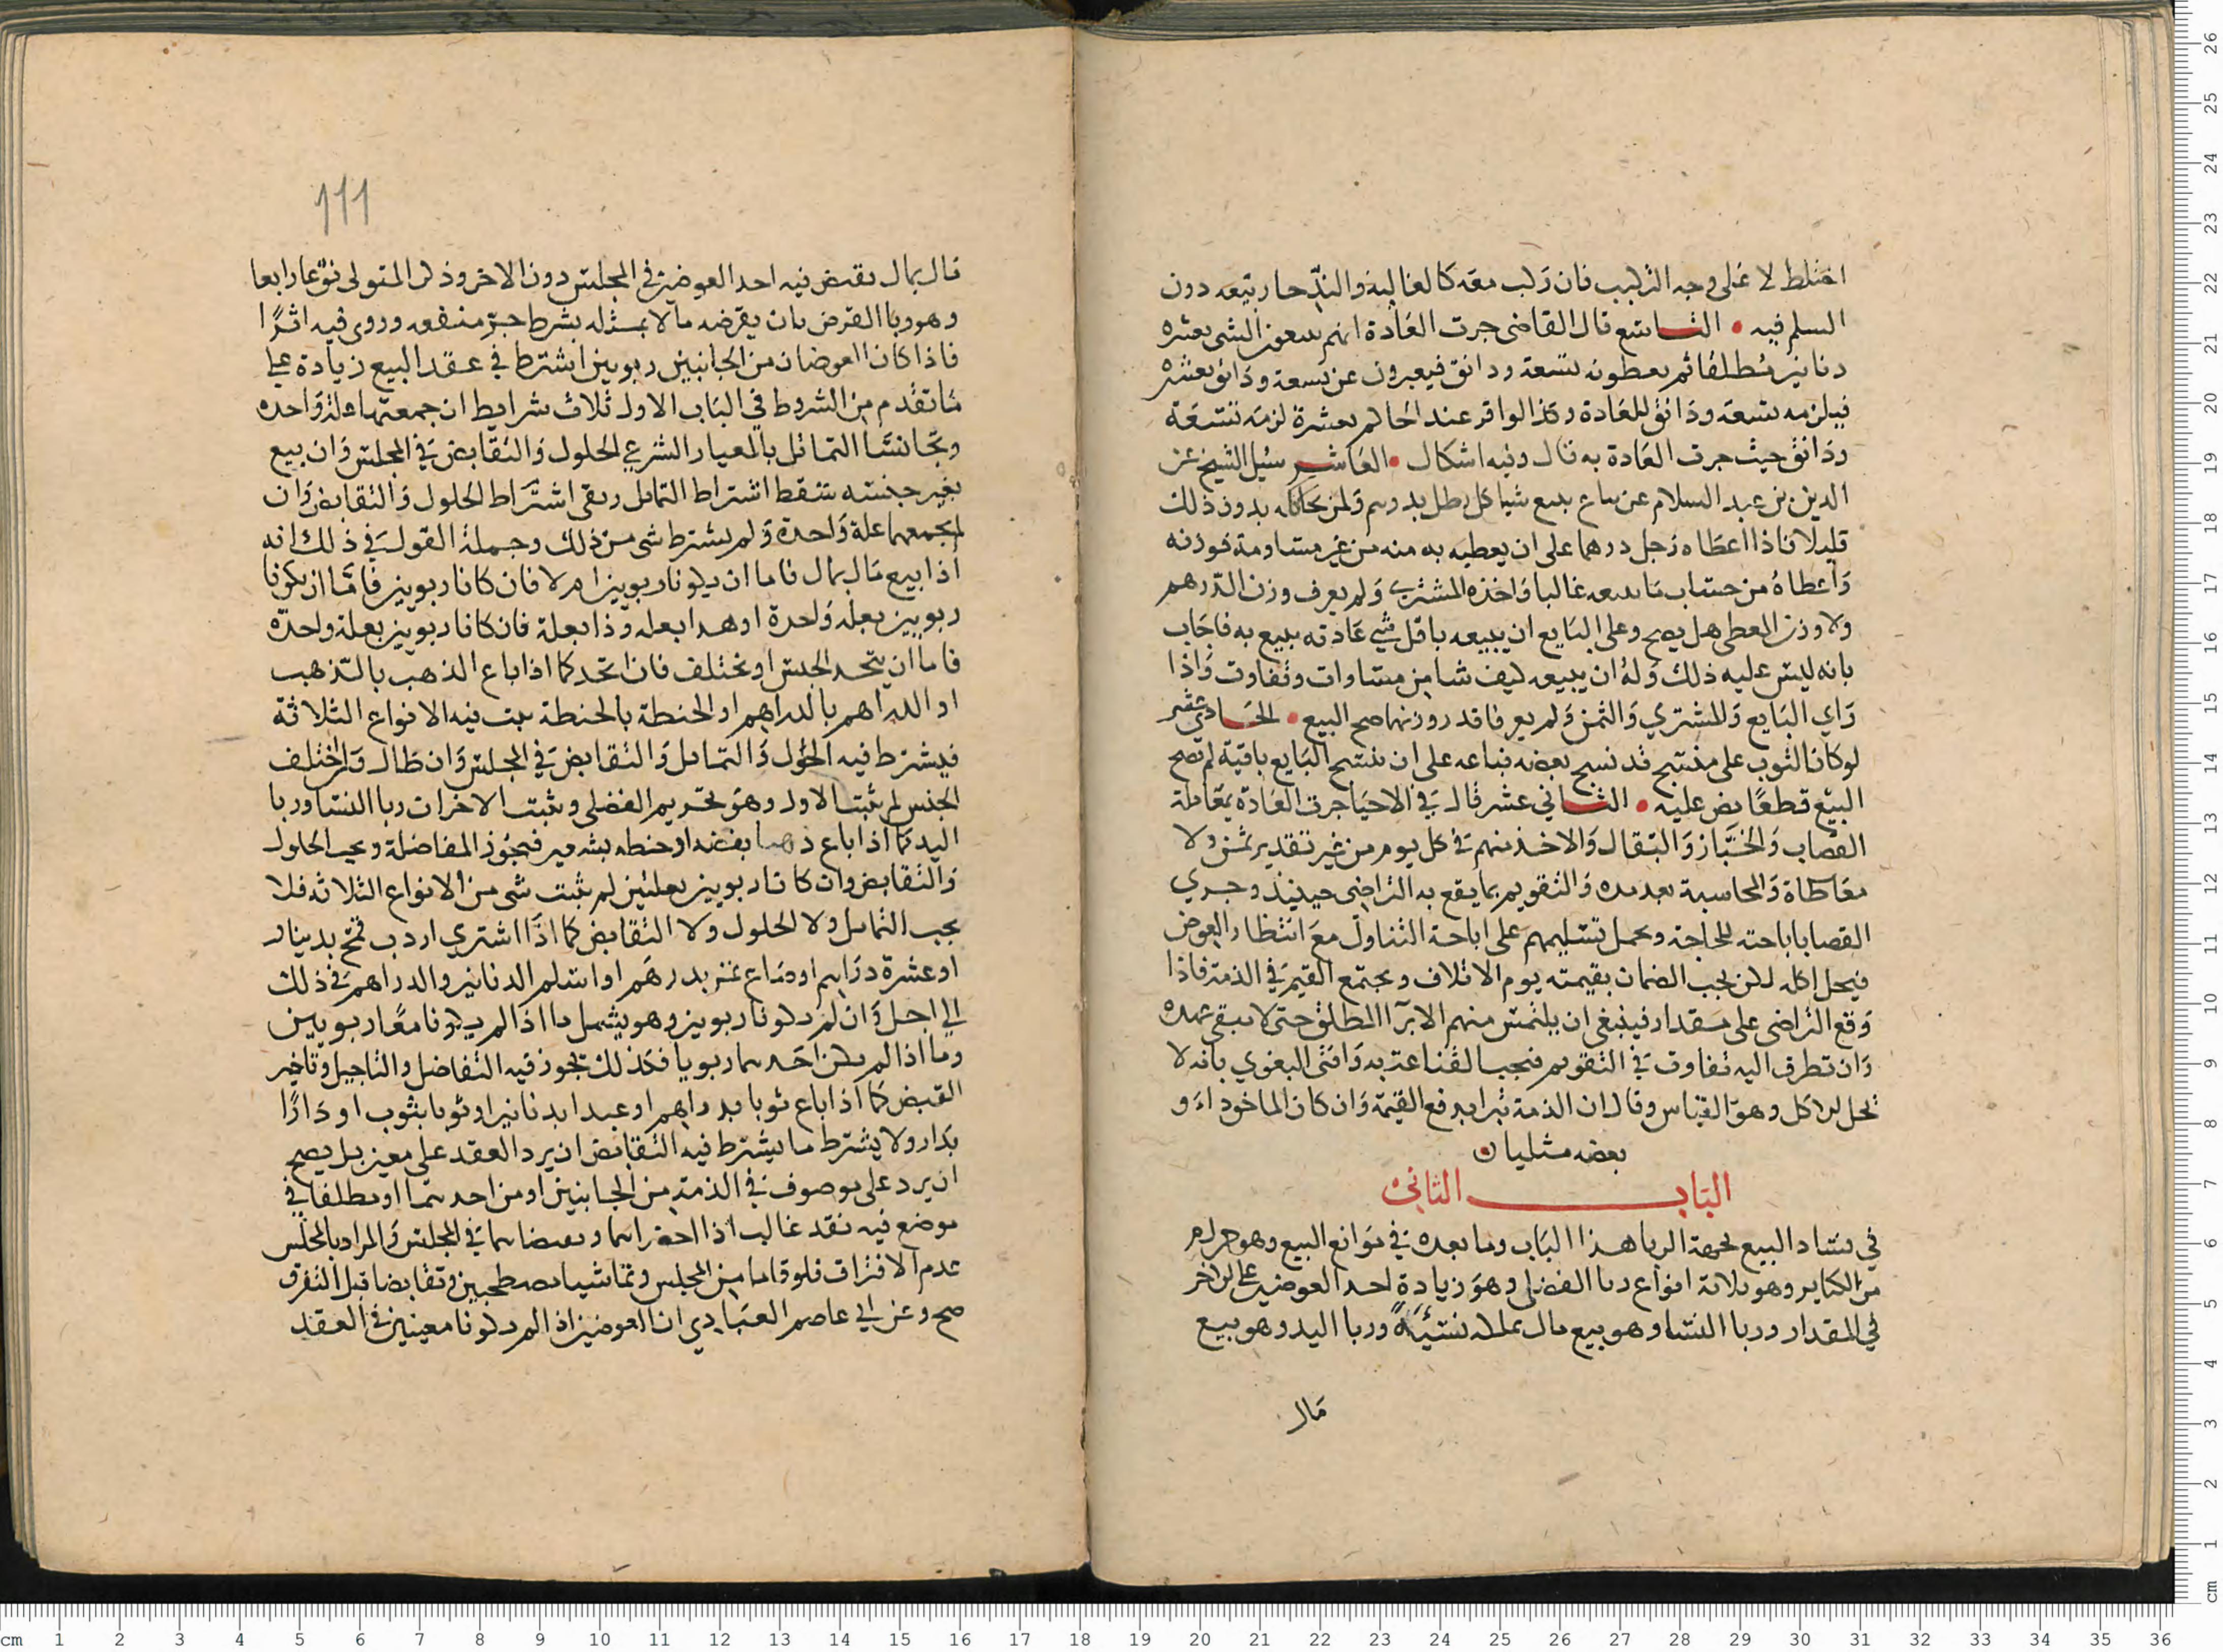 اختلط لا على وجه التركيب فان ركب معه كالغالية والندّ جاز بيعه دون
السلم فيه • التاسع قال القاضى جرت العادة انهم يبيعون الشى بعشره
دنانير مطلقا ثم يعطون تسعة ودانق فيعبرون عن تسعة ودانق بعشره
فيلزمه تسعة ودانق للعادة وكذا لو اقر عند الحاكم بعشرة لزمه تسعة
ودانق حيث جرت العادة به قال وفيه اشكال • العاشر سئل الشيخ عز
الدين بن عبد السلام عن بياع يبيع شيا كل رطل بدرهم ولمن يحاككه بدون ذلك
قليلا فاذا اعطاه رجل درهما على ان يعطيه به منه من غير مساومة فوزنه
واعطاه من حساب ما يبيعه غالبا واخذه المشترى ولم يعرف وزن الدرهم
ولا وزن المعطى هل يصح وعلى البايع ان يبيعه باقل شي عادته يبيع به فاجاب
بانه ليس عليه ذلك وله ان يبيعه كيف شا من مساوات وتفاوت واذا
راي البايع والمشتري والثمن ولم يعرفا قدر وزنهما صح البيع • الحادي عشر
لو كان الثوب على منسج قد نسج بعضه فباعه على ان ينسج البايع باقيه لم يصح
البيع قطعا نص عليه • الثاني عشر قال في الاحيا جرت العادة بمعاملة
القصاب والخباز والبقال والاخذ منهم في كل يوم من غير تقدير ثمن ولا
معاطاة والمحاسبة بعد مده والتقويم بما يقع به التراضى حينيذ وجري
القضا باباحته للحاجة ويحمل تسليمهم على اباحة التناول مع انتظار العوض
فيحل اكله لكن يجب الضمان بقيمته يوم الاتلاف ويجتمع القيم في الذمة فاذا
وقع التراضى على مقدار فينبغى ان يلتمس منهم الابرآ المطلق حتى لا تبقى عهده
وان تطرق اليه تفاوت في التقويم فتجب القناعة به وافتى البغوي بانه لا
يحل له الاكل وهو القياس وقال ان الذمة تبرا بدفع القيمة وان كان الماخوذ او
بعضه مثليا ن
الباب الثاني
في فساد البيع لجهة الربا هذا الباب وما بعده في موانع البيع وهو حرام
من الكباير وهو ثلاثة انواع ربا الفضل وهو زيادة احد العوضين على الاخر
في المقدار وربا النسا وهو بيع مال بمثله نسيئة وربا اليد وهو بيع
مال
١١١
مال بمال يقبض فيه احد العوضين في المجلس دون الاخر وذكر المتولى نوعا رابعا
وهو ربا القرض بان يقرضه مالا بمثله بشرط جر منفعه وروى فيه اثرًا
فاذا كان العوضان من الجانبين ربويين اشترط في عقد البيع زيادة على
ما تقدم من الشروط في الباب الاول ثلاث شرايط ان جمعتهما علة واحده
وتجانسا التماثل بالمعيار الشرعي الحلول والتقابض في المجلس وان بيع
بغير جنسه سقط اشتراط التماثل وبقى اشتراط الحلول والتقابض وان
لم تجمعهما علة واحدة ولم يشترط شى من ذلك وجملة القول في ذلك انه
اذا بيع مال بمال فاما ان يكونا ربويين ام لا فان كانا ربويين فاما ان يكونا
ربويين بعلة واحدة او هذا بعله وذا بعلة فان كانا ربويين بعلة واحدة
فاما ان يتحد الجنس او يختلف فان اتحد كما اذا باع الذهب بالذهب
او الدراهم بالدراهم او الحنطة بالحنطة ثبت فيه الانواع الثلاثة
فيشترط فيه الحلول والتماثل والتقابض في المجلس وان طال وان اختلف
الجنس لم يثبت الاول وهو تحريم الفضل ويثبت الاخران ربا النسا وربا
اليد كما اذا باع ذهبا بفضه او حنطه بشعير فيجوز المفاضلة ويجب الحلول
والتقابض وان كانا ربويين بعلتين لم يثبت شى من الانواع الثلاثه فلا
يجب التماثل ولا الحلول ولا التقابض كما اذا اشتري اردب قمح بدينار
او عشرة دراهم او صاع بدرهم او اسلم الدنانير والدراهم في ذلك
الي اجل وان لم يكونا ربويين وهو يشمل ما اذا لم يكونا معًا ربويين
وما اذا لم يكن احدهما ربويا فكذلك يجوز فيه التفاضل والتاجيل وتاخير
القبض كما اذا باع ثوبا بدراهم او عبدا بدنانير او ثوبا بثوب او دارًا
بدار ولا يشترط ما يشترط فيه التقابض ان يرد العقد على معين بل يصح
ان يرد على موصوف في الذمة من الجانبين او من احدهما او مطلقا في
موضع فيه نقد غالب اذا احضراهما وتقابضاهما في المجلس والمراد بالمجلس
عدم الافتراق فلو قاما من المجلس وتماشيا مصطحبين وتقابضا قبل التفرق
صح وعن ابي عاصم العبادي ان العوضين اذا لم يكونا معينين في العقد